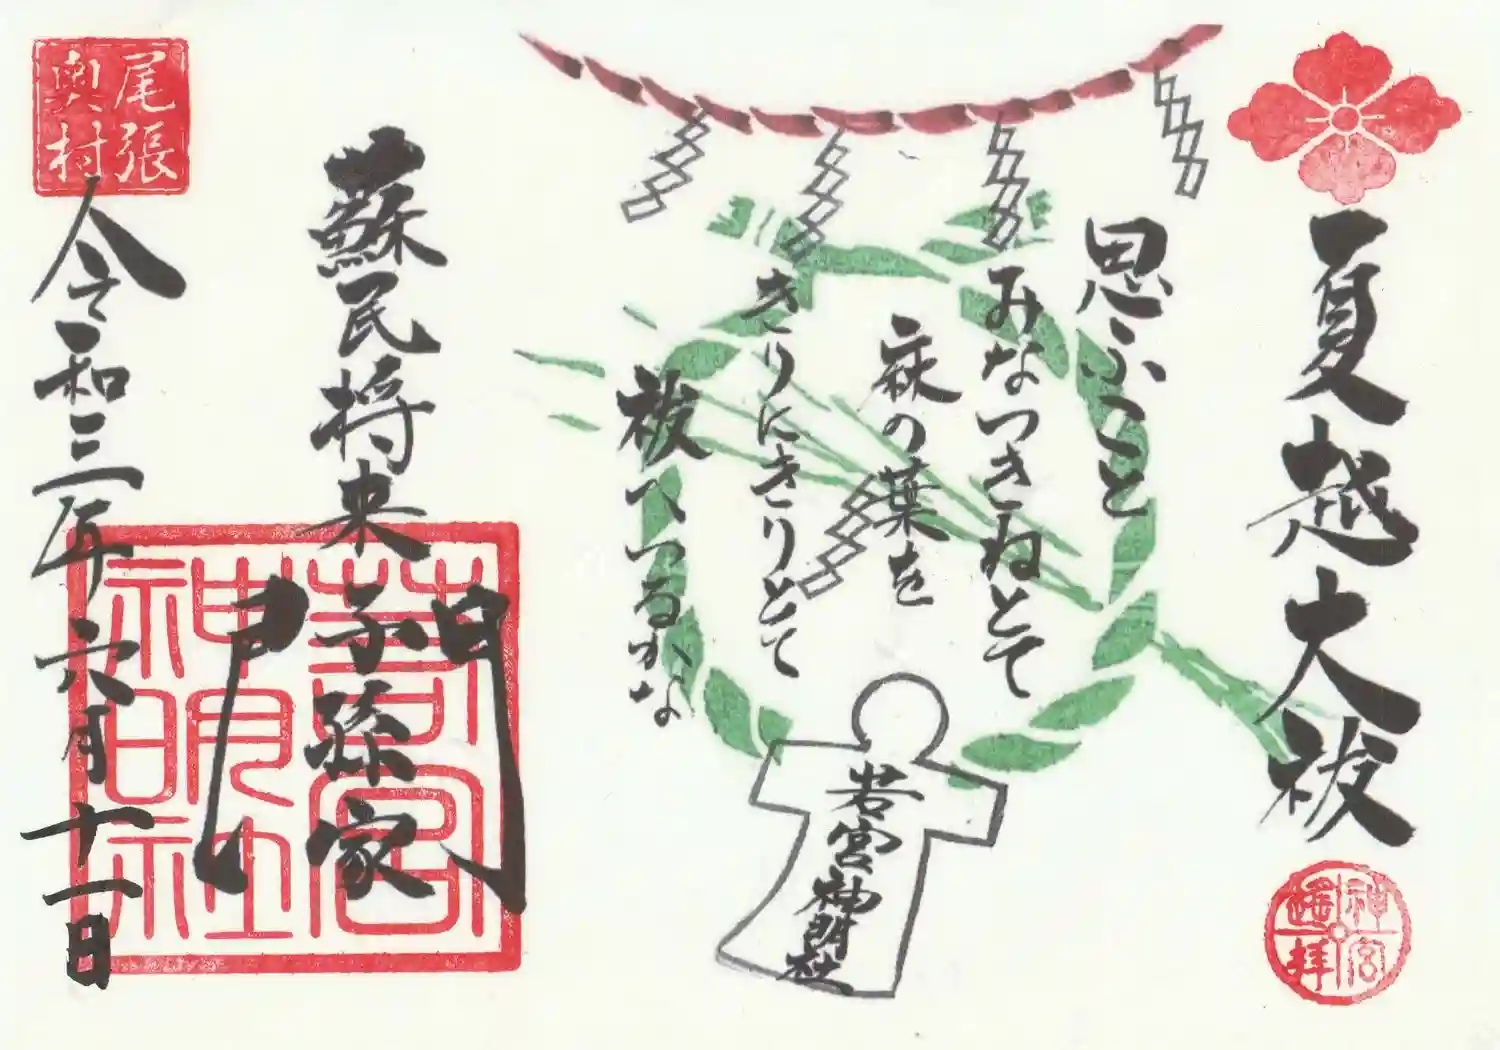 夏越大祓
神宮
遙拝
思ふこと
みなつきねとて
麻の葉を
きりにきりとて
祓へつるかな
若宮神明社
蘇民将来子孫家門
若宮
神明社
尾張
奥村
令和三年六月十一日